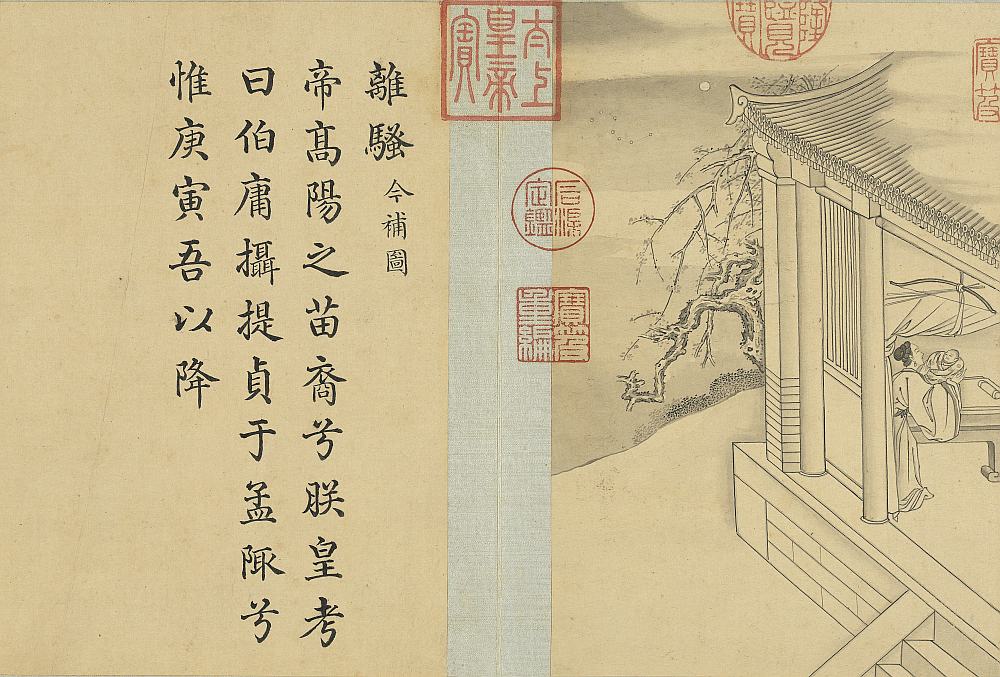 離騷 今補圖
帝高陽之苗裔兮朕皇考
曰伯庸攝提貞于孟陬兮
惟庚寅吾以降
太上皇帝之寶
石渠定鑑
寶笈重編